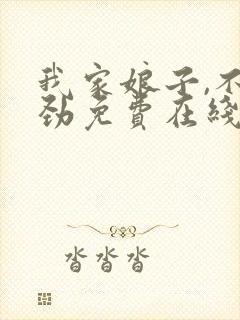 我家娘子,不
劲免费在线
沓沓沓